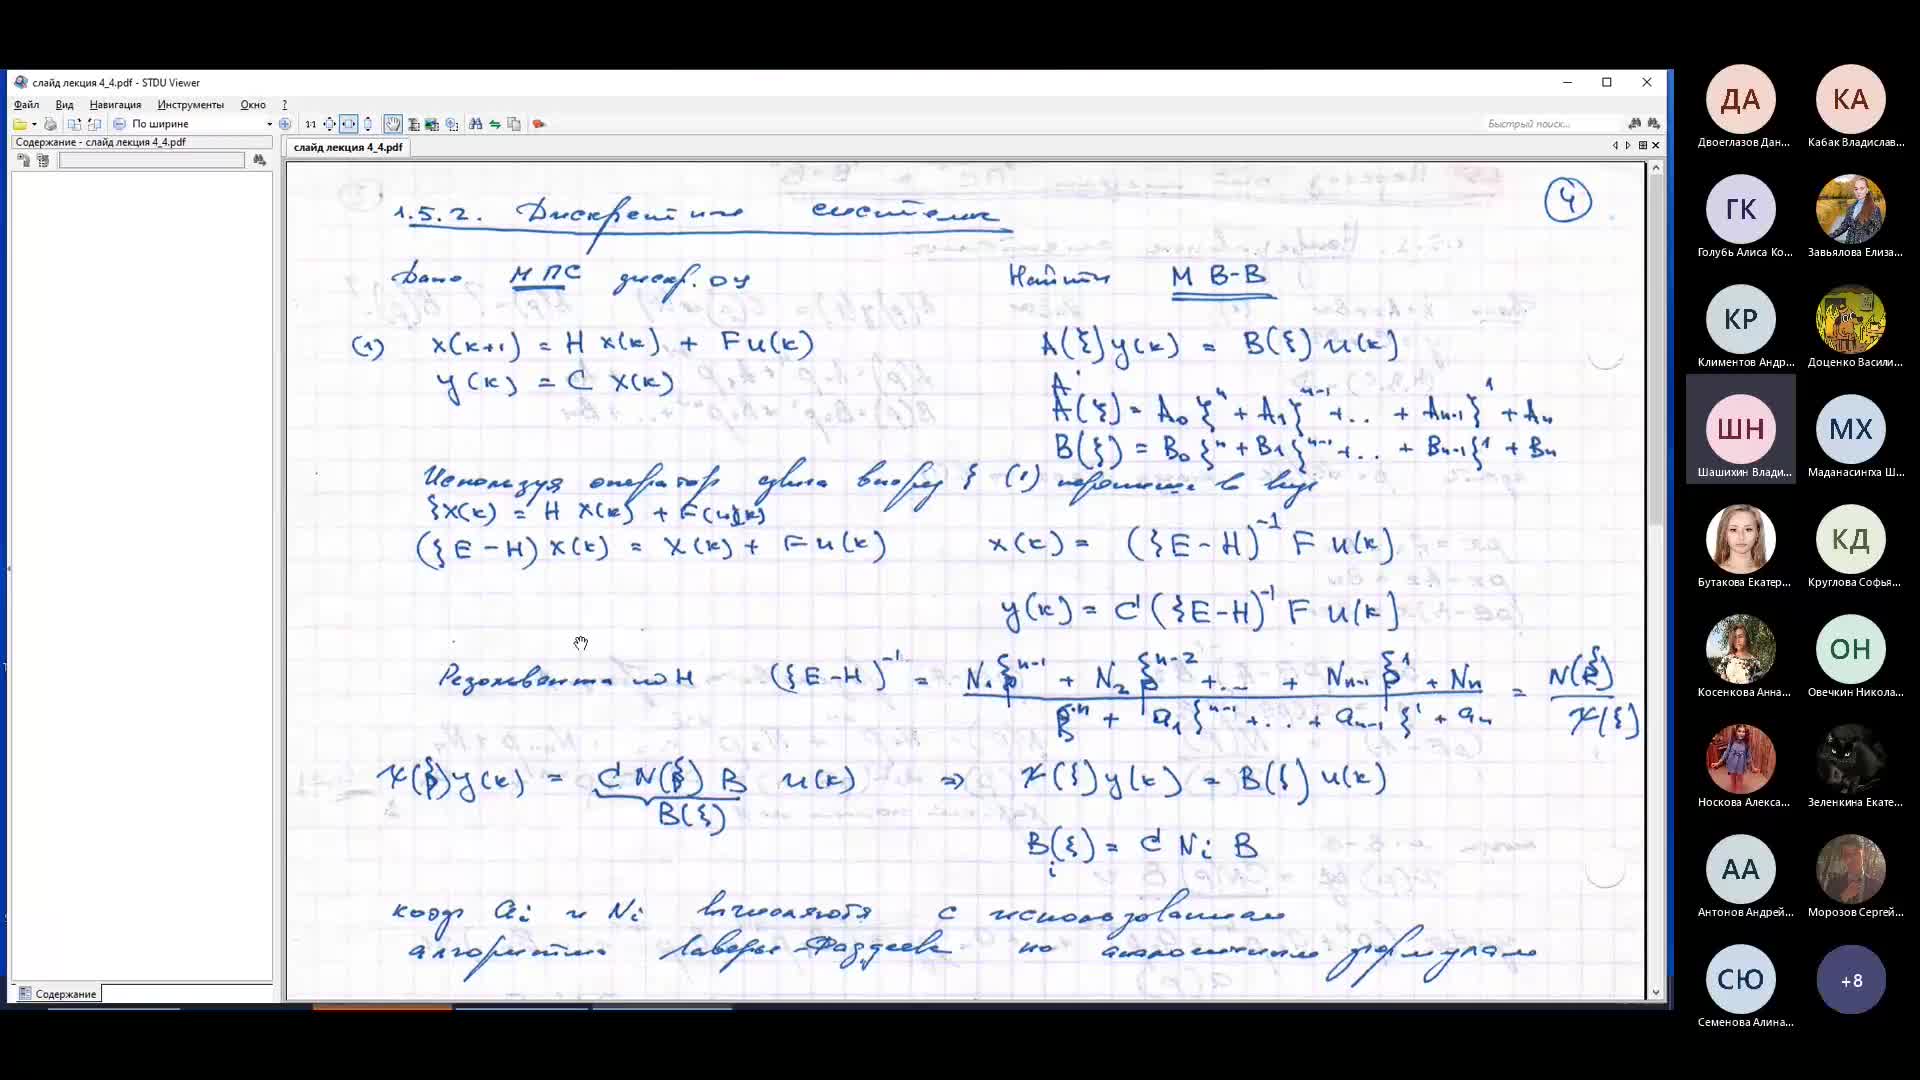 слайд лекция 4_4.pdf - STDU Viewer
Файл Вид Навигация Инструменты Окно ?
По ширине
1:1
Быстрый поиск...
Содержание - слайд лекция 4_4.pdf
слайд лекция 4_4.pdf
4
1.5.2. Дискретные системы
Дано МПС дискр. ОУ
Найти М В-В
(1) x(k+1) = H x(k) + F u(k)
y(k) = C x(k)
A(ξ) y(k) = B(ξ) u(k)
A(ξ) = A₀ ξⁿ + A₁ ξⁿ⁻¹ + .. + Aₙ₋₁ ξ¹ + Aₙ
B(ξ) = B₀ ξⁿ + B₁ ξⁿ⁻¹ + .. + Bₙ₋₁ ξ¹ + Bₙ
Используя оператор сдвига вперед ξ (1) перепишем в виде
ξ x(k) = H x(k) + F u(k)
(ξE - H) x(k) = x(k) + F u(k)
x(k) = (ξE - H)⁻¹ F u(k)
y(k) = C (ξE - H)⁻¹ F u(k)
Резольвента по H (ξE - H)⁻¹ = N₁ ξⁿ⁻¹ + N₂ ξⁿ⁻² + ... + Nₙ₋₁ ξ¹ + Nₙ = N(ξ)
ξⁿ + a₁ ξⁿ⁻¹ + .. + aₙ₋₁ ξ¹ + aₙ 𝒳(ξ)
𝒳(ξ) y(k) = C N(ξ) B u(k) ⇒ 𝒳(ξ) y(k) = B(ξ) u(k)
B(ξ)
Bᵢ(ξ) = C Nᵢ B
коэф aᵢ и Nᵢ вычисляются с использованием
алгоритма Леверье-Фаддеева по аналогичным формулам
Содержание
ДА
КА
Двоеглазов Дан...
Кабак Владислав...
ГК
Голубь Алиса Ко...
Завьялова Елиза...
КР
Климентов Андр...
Доценко Васили...
ШН
МХ
Шашихин Влади...
Маданасингха Ш...
КД
Бутакова Екатер...
Круглова Софья...
ОН
Косенкова Анна...
Овечкин Никола...
Носкова Алекса...
Зеленкина Екате...
АА
Антонов Андрей...
Морозов Сергей...
СЮ
+8
Семенова Алина...